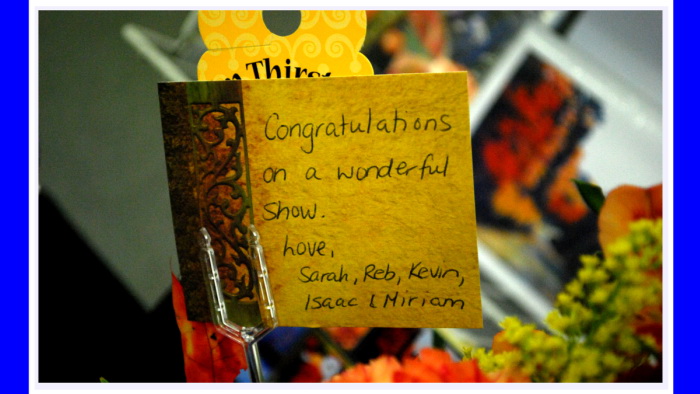 n Thirs
Congratulations
on a wonderful
Show.
Love,
Sarah, Reb, Kevin,
Isaac & Miriam